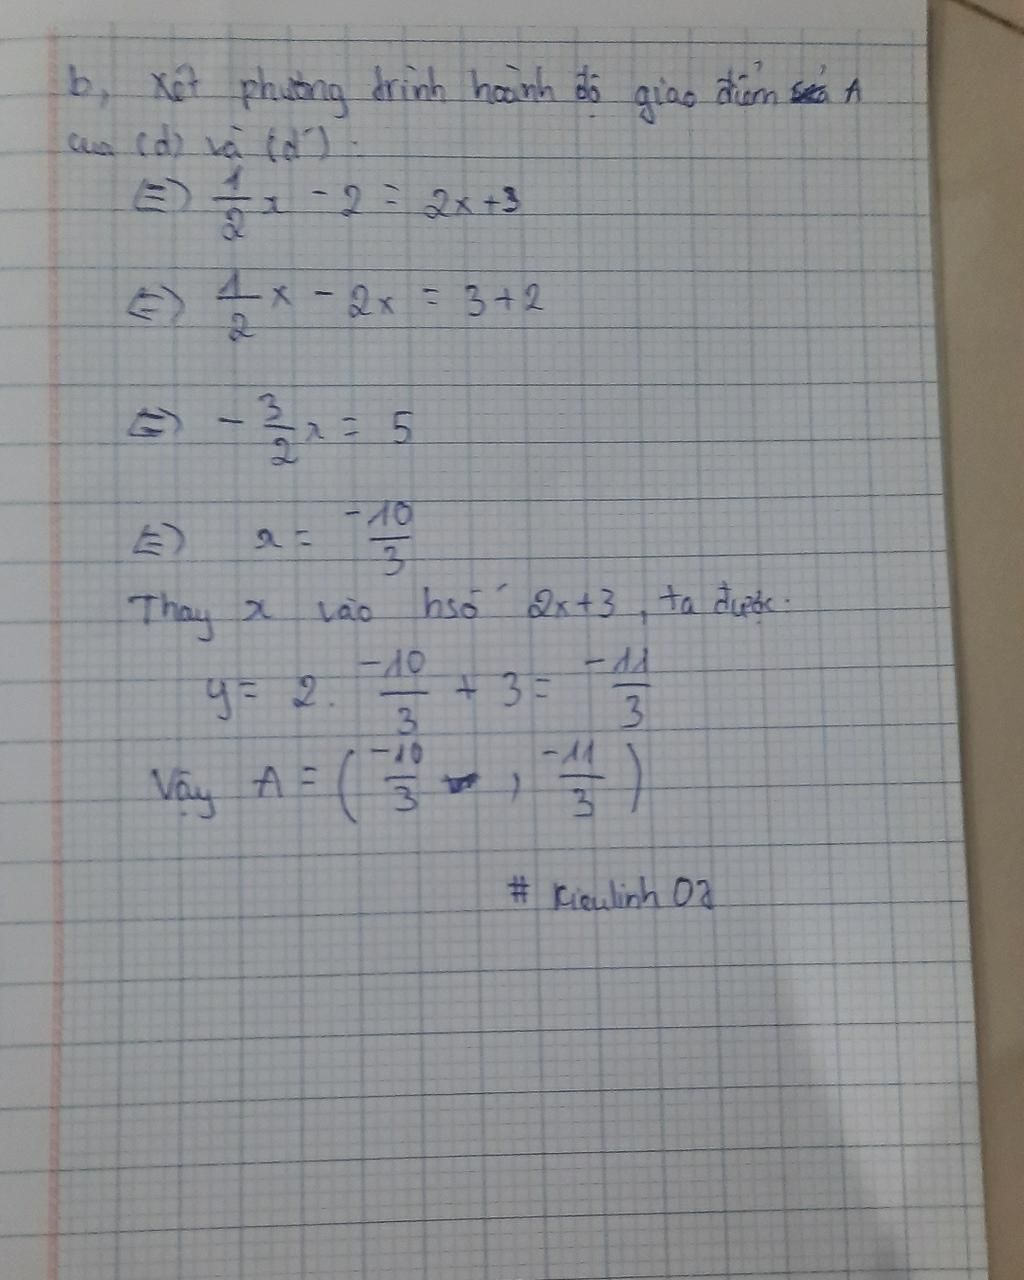 b, Xét phương trình hoành độ giao điểm A
của (d) và (d') :
<=> 1/2 x - 2 = 2x+3
<=> 1/2 x - 2x = 3+2
<=> - 3/2 x = 5
<=> x = -10/3
Thay x vào hsố 2x+3, ta được.
y = 2. -10/3 + 3 = -11/3
Vậy A = ( -10/3 , -11/3 )
# Kieulinh 02